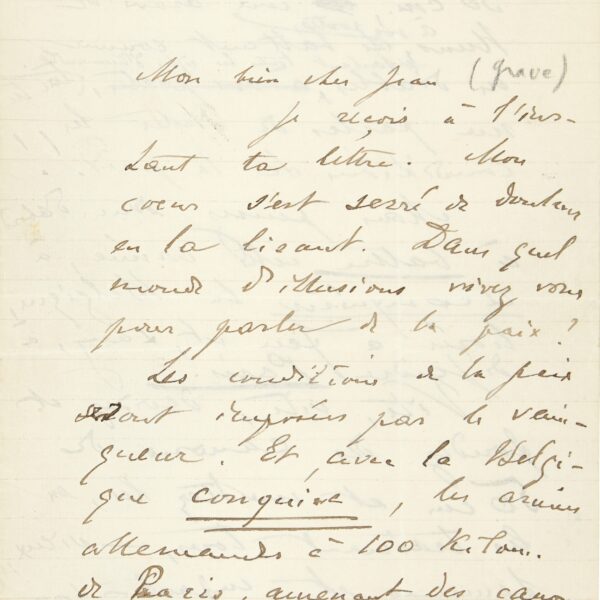 Mon bien cher Jean (grave)
je reçois à l'ins-
tant ta lettre. Mon
coeur s'est serré de douleur
en la lisant. Dans quel
monde d'illusions vivez vous
pour parler de la paix ?
Les conditions de la paix
sont imposées par le vain-
queur. Et, avec la Belgi-
que conquise, les armées
allemandes à 100 kilom.
de Paris, amenant des cano